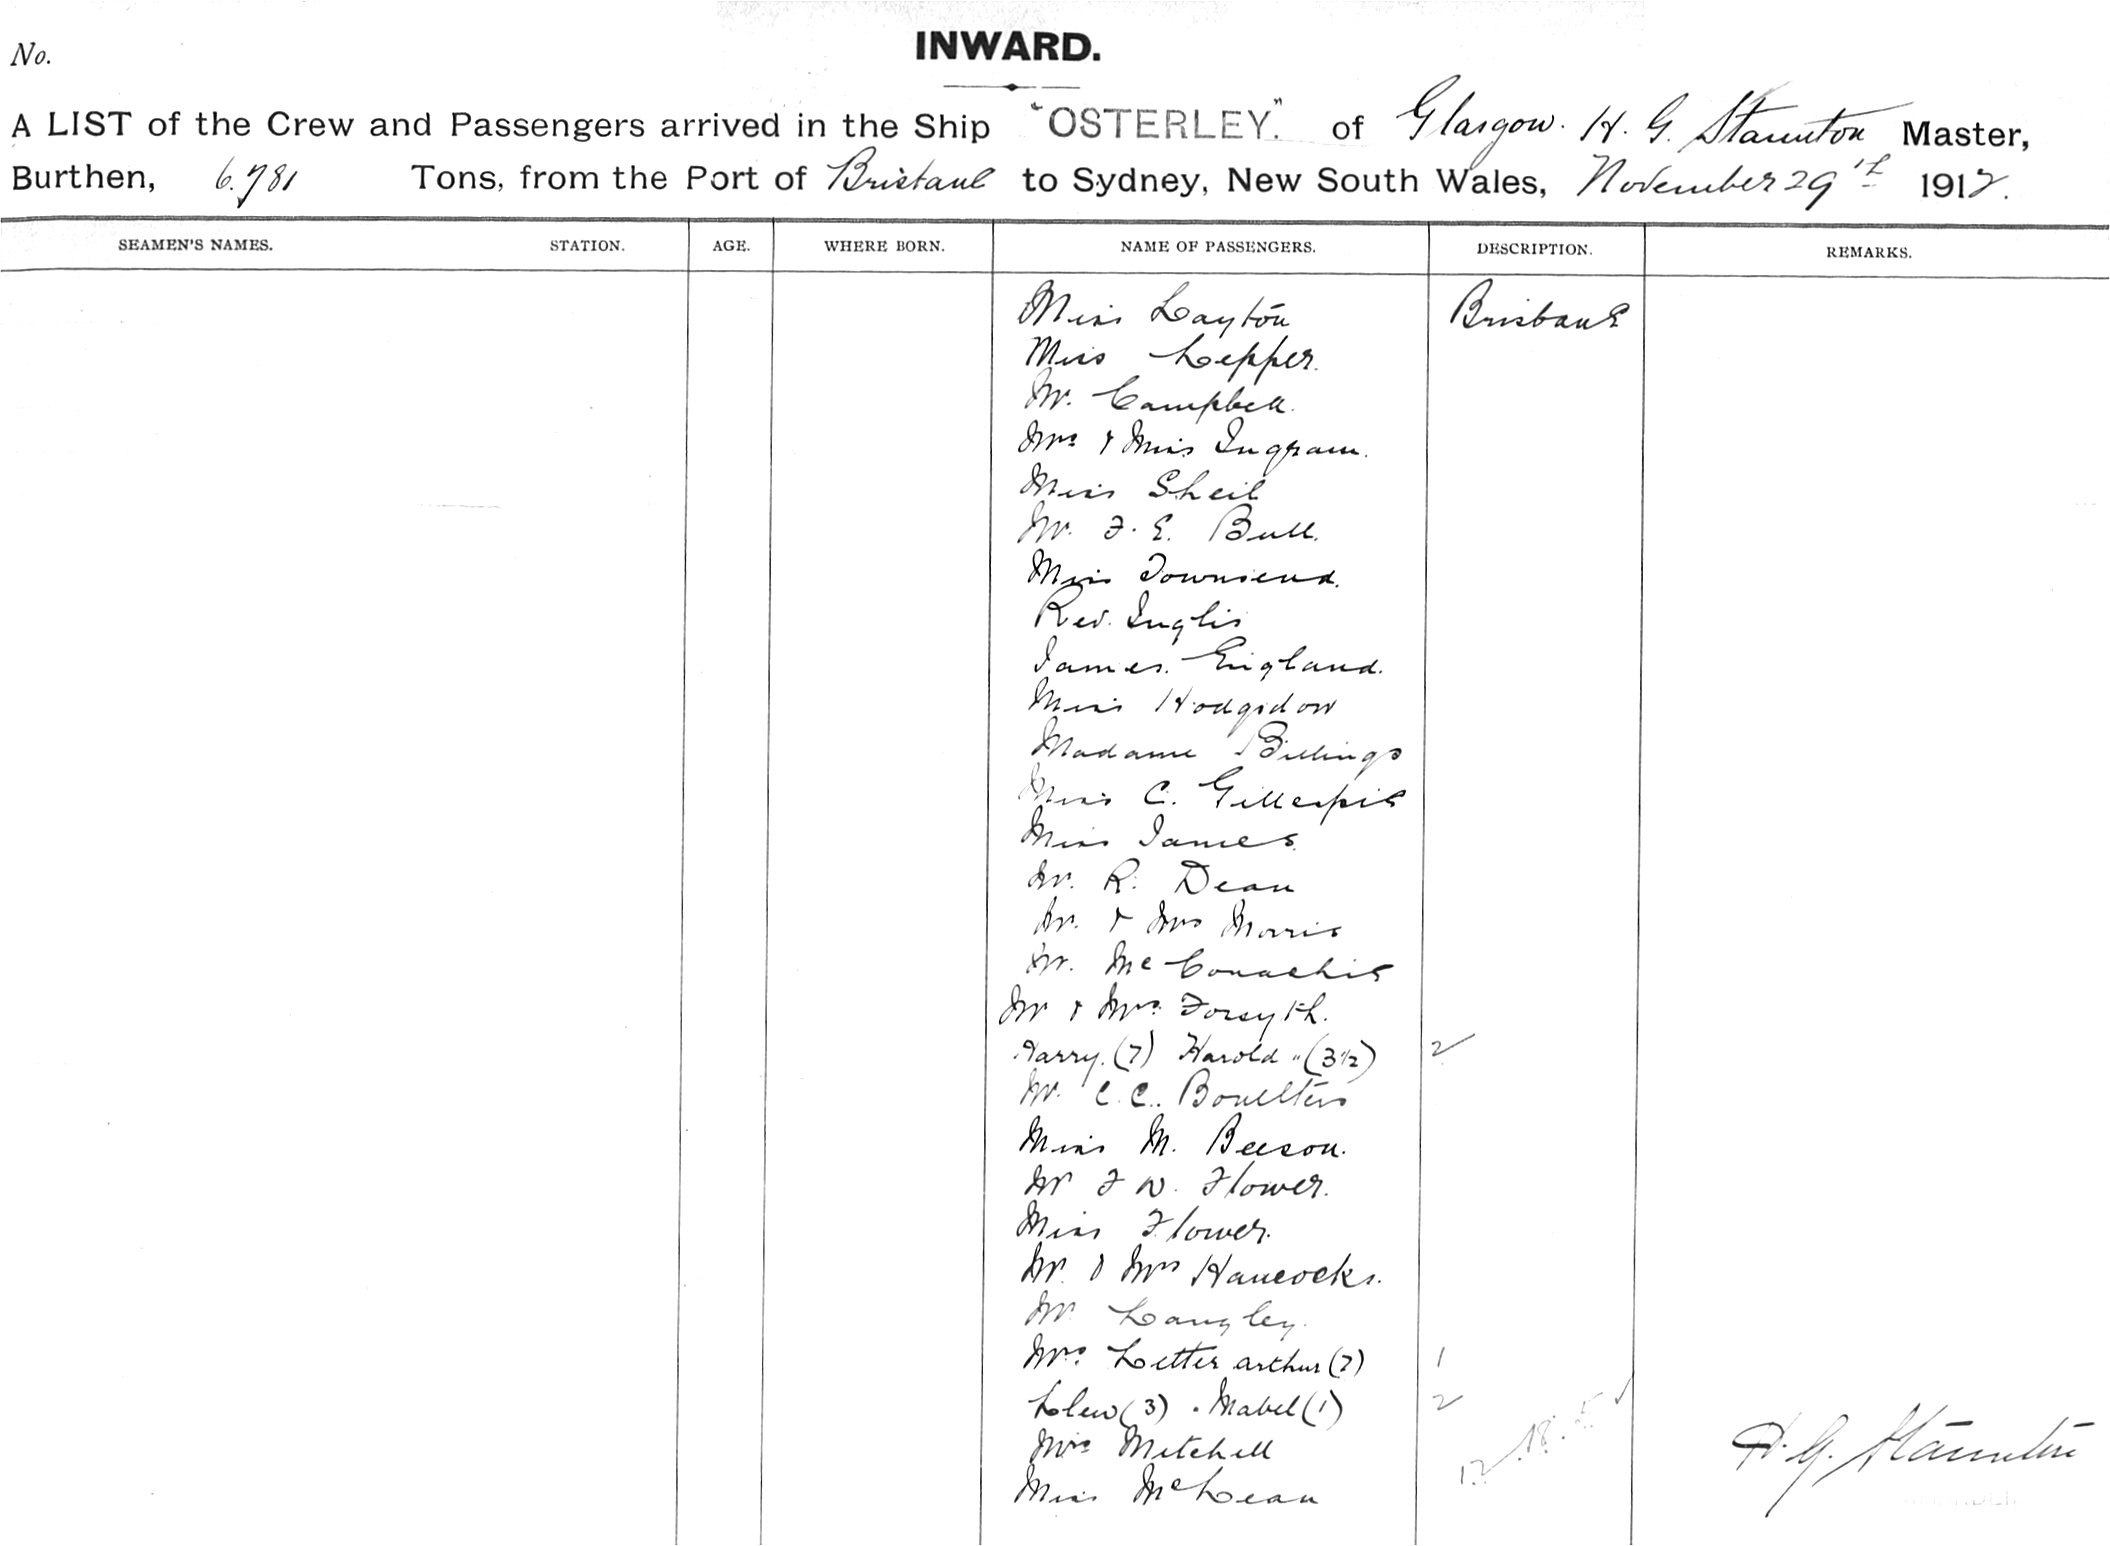 INWARD.
No.
A LIST of the Crew and Passengers arrived in the Ship "OSTERLEY." of Glasgow. H. G. Staunton Master,
Burthen, 6.781 Tons, from the Port of Brisbane to Sydney, New South Wales, November 29th 1912.
SEAMEN'S NAMES. STATION. AGE. WHERE BORN. NAME OF PASSENGERS. DESCRIPTION. REMARKS.
Miss Layton Brisbane
Miss Lepper.
Mr. Campbell.
Mrs & Miss Ingram.
Miss Sheil
Mr. F. E. Bull.
Miss Townsend.
Rev. Inglis
James. England.
Miss Hodgsdon
Madame Billings
Miss C. Gillespie
Miss James.
Mr. R. Dean
Mr. & Mrs Morris
Mr. McConachie
Mr & Mrs. Forsyth.
Harry. (7) Harold " (3½) 2
Mr. C. C. Boulters
Miss M. Beeson.
Mr F W. Flower.
Miss Flower.
Mr. & Mrs Hancocks.
Mr. Langley.
Mrs. Letter arthur (7) 1
(3) . Mabel (1) 2
Mrs Mitchell
H. G. Staunton
Miss McLean